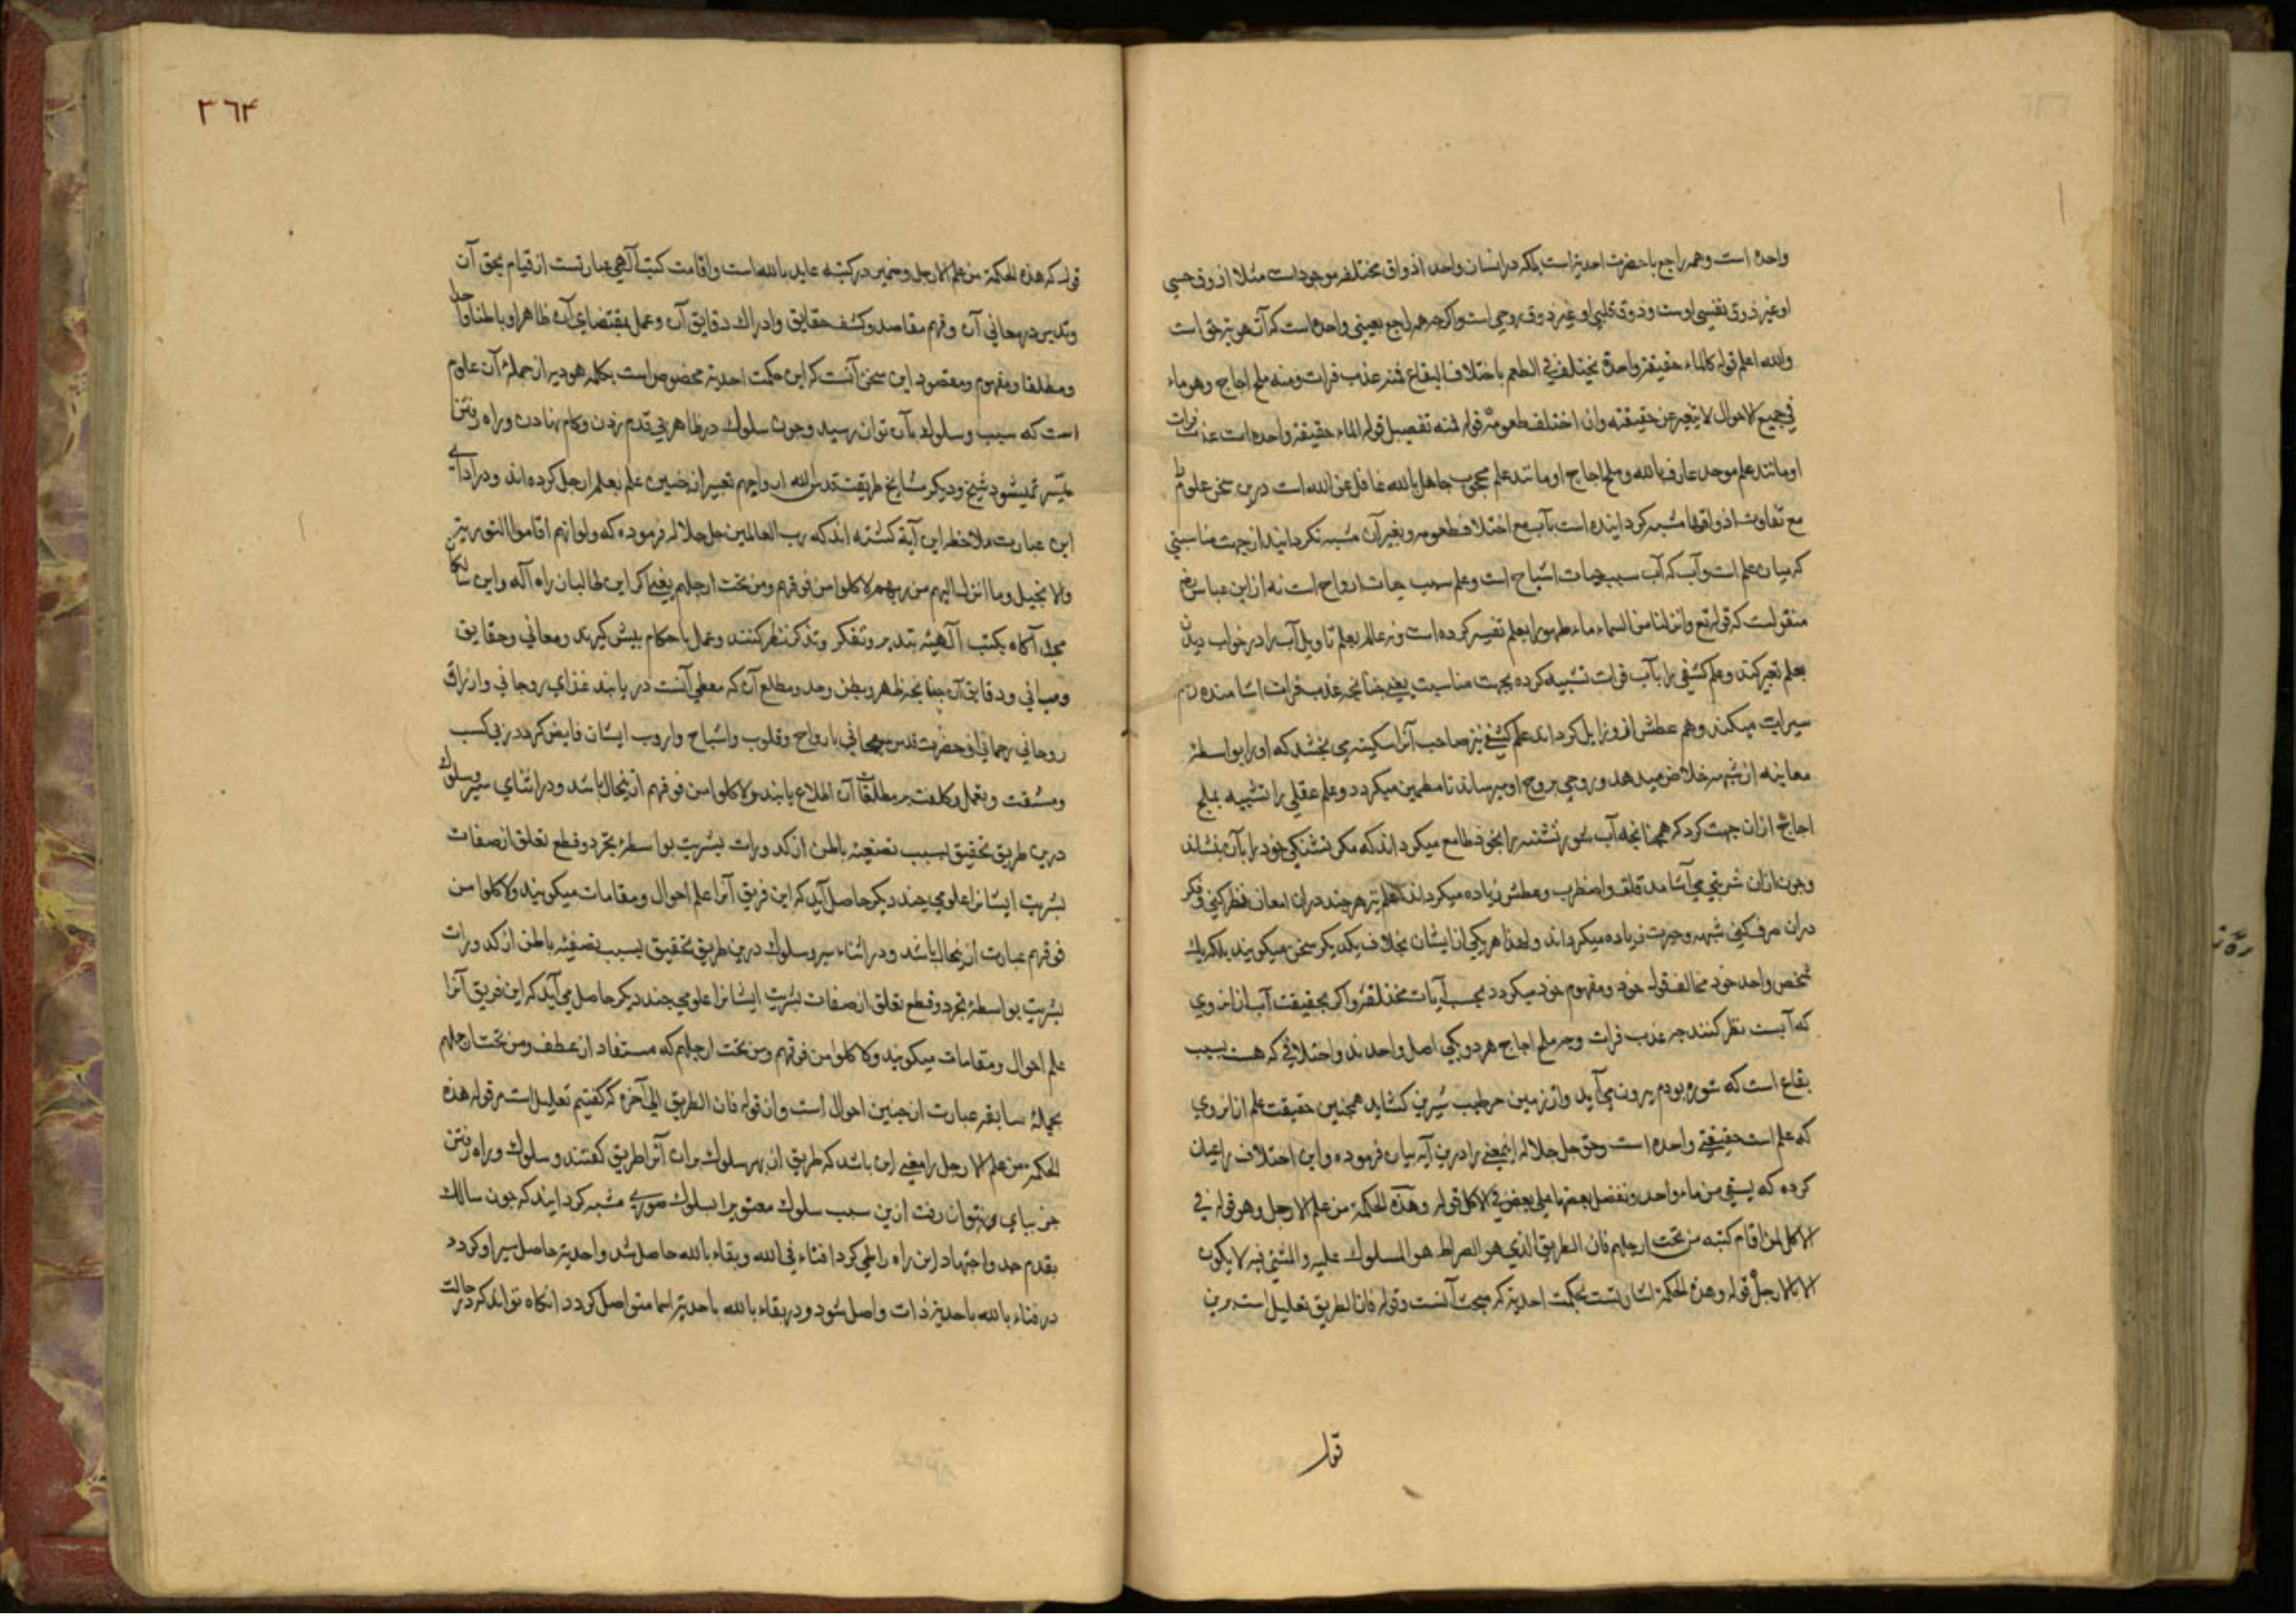 واحده است وهمه راجع باحضرت احدیة است بلکه در انسان واحد اذواق مختلفه موجود است مثلا ذوق حسی
او غیر ذوق نفسی اوست وذوق قلبی او غیر ذوق روحی است واکرچه همه راجع بعینی واحده است که آن هویة حق است
والله اعلم قوله کالماء حقیقة واحدة یختلف فی الطعم باختلاف البقاع فمنه عذب فرات ومنه ملح اجاج وهو ماء
فی جمیع الاحوال لا یتغیر عن حقیقته وان اختلف طعومه قوله فمنه تفصیل قوله الماء حقیقة واحده است عذب فرات
او مانند علم موحد عارف بالله وملح اجاج او مانند علم محجوب جاهل بالله غافل عن الله است درین سخن علوم
مع تفاوت اذواقها مشبه کردانیده است بآب مع اختلاف طعومه وبغیر آن مشبه نکردانید از جهت مناسبتی
که میان علم است وآب که آب سبب حیات اشباح است وعلم سبب حیات ارواح است نه از ابن عباس رض
منقولست که قوله تع وانزلنا من السماء ماء طهورا بعلم تفسیر کرده است ونه عالم بعلم تاویل آب را در خواب دیدن
بعلم تعبیر کند وعلم کشفی را بآب فرات تشبیه کرده بجهت مناسبت یعنی چنانچه عذب فرات آشامنده را هم
سیراب میکند وهم عطش ازو زایل کرداند علم کشفی نیز صاحب آنرا سکینه می بخشد که اورا بواسطهٔ
معاینه از شبهه خلاص میدهد وروحی بروح او میرساند تا مطمین میکردد وعلم عقلی را تشبیه بملح
اجاج ازان جهت کرد که همچنانچه آب شور تشنه را بخود طامع میکرداند که مکر تشنکی خود را بآن بنشاند
وچون ازان شربتی می آشامد قلق واضطرب وعطش زیاده میکرداند علم نیز هر چند دران امعان نظر کنی وفکر
دران صرف کنی شبهه وحیرت زیاده میکرداند ولهذا هر یکی از ایشان بخلاف یکدیکر سخن میکویند بلکه یک
شخص واحد خود مخالف قول خود ومفهوم خود میکردد بحسب آیات مختلفه واکر بحقیقت آب ازان روی
که آبست نظر کنند چه عذب فرات وچه ملح اجاج هر دو یکی اصل واحدند واختلافی که هست بسبب
بقاع است که شوره بودم بیرون می آید واز زمین طیب شیرین کشاید همچنین حقیقت علم ازان روی
که علم است حقیقتی واحده است وحق جل جلاله این معنی را درین آیه بیان فرموده واین اختلاف را عیان
کرده که یسقی من ماء واحد ونفضل بعضها علی بعض فی الاکل قوله وهذه الحکمة من علم الارجل وهو قوله فی
الاکل لمن اقام کتبه من تحت ارجلهم فان الطریق الذی هو الصراط هو المسلوک علیه والمشی فیه لا یکون
الا بالارجل قوله وهذه الحکمة اشارتست بحکمت احدیة که مبحث آنست وقوله فان الطریق تعلیل است برین
قوله
۳۶۴
قوله که هذه الحکمة من علم الارجل وضمیر در کتبه عاید بالله است واقامت کتب آلهی عبارتست از قیام بحق آن
وتدبر در معانی آن وفهم مقاصد وکشف حقایق وادراک دقایق آن وعمل بمقتضای آن ظاهرا وباطنا وحدا
ومطلعا ومفهوم ومقصود این سخن آنست که این حکمت احدیة مخصوص است بکلمه هودیه از جملهٔ آن علوم
است که سبب وسلوک بآن توان رسید وچون سلوک در ظاهر بی قدم زدن وکام نهادن وراه رفتن
میسر نمیشود شیخ ودیکر مشایخ طریقت قدس الله ارواحهم تعبیر از چنین علم بعلم ارجل کرده اند ودر ادای
این عبارت ملاحظه این آیة کشته اند که رب العالمین جل جلاله فرموده که ولو انهم اقاموا التوریة
والانجیل وما انزل الیهم من ربهم لاکلوا من فوقهم ومن تحت ارجلهم یعنی اکر این طالبان راه آله واین سالکان
مجد آکاه بکتب آلهیه بتدبر وتفکر وتذکر نظر کنند وعمل باحکام پیش کیرند ومعانی وحقایق
ومبانی ودقایق آن چنانچه ظهر وبطن وحد ومطلع آن که معطی آنست دریابند غذای روحانی وارزاق
روحانی رحمانی از حضرت قدس سبحانی بارواح وقلوب واشباح ایشان فایض کردد بی کسب
ومشقت وتعمل وکلفت بر مطلقات آن اطلاع یابند ولاکلوا من فوقهم ازین حال باشد ودر اثنای سیر وسلوک
درین طریق تحقیق بسبب تصفیه باطن از کدورات بشریت بواسطهٔ تجرد وقطع تعلق از صفات
بشریت ایشانرا علومی چند دیکر حاصل آید که این فریق آنرا علم احوال ومقامات میکویند ولاکلوا من
فوقهم عبارت ازین حال باشد ودر اثناء سیر وسلوک درین طریق تحقیق بسبب تصفیه باطن از کدورات
بشریت بواسطهٔ تجرد وقطع تعلق از صفات بشریت ایشانرا علومی چند دیکر حاصل می آید که این فریق آنرا
علم احوال ومقامات میکویند ولاکلوا من فوقهم ومن تحت ارجلهم که مستفاد از عطف ومن تحت ارجلهم
بجملهٔ سابقه عبارت از چنین احوال است وان قوله فان الطریق الی آخره که کفتیم تعلیل است مر قوله هذه
الحکمة من علم الارجل را معنی این باشد که طریق از بهر سلوک بران آنرا طریق کفتند وسلوک وراه رفتن
جز بپای نتوان رفت ازین سبب سلوک معنوی را بسلوک صوری مشبه کردانید که چون سالک
بقدم جد واجتهاد این راه را طی کرد فناء فی الله وبقاء بالله حاصل شد واحدیة حاصل سیر او کردد
در فناء بالله باحدیة ذات واصل شود ودر بقاء بالله باحدیة اسما متواصل کردد آنکاه تواند که در حالت